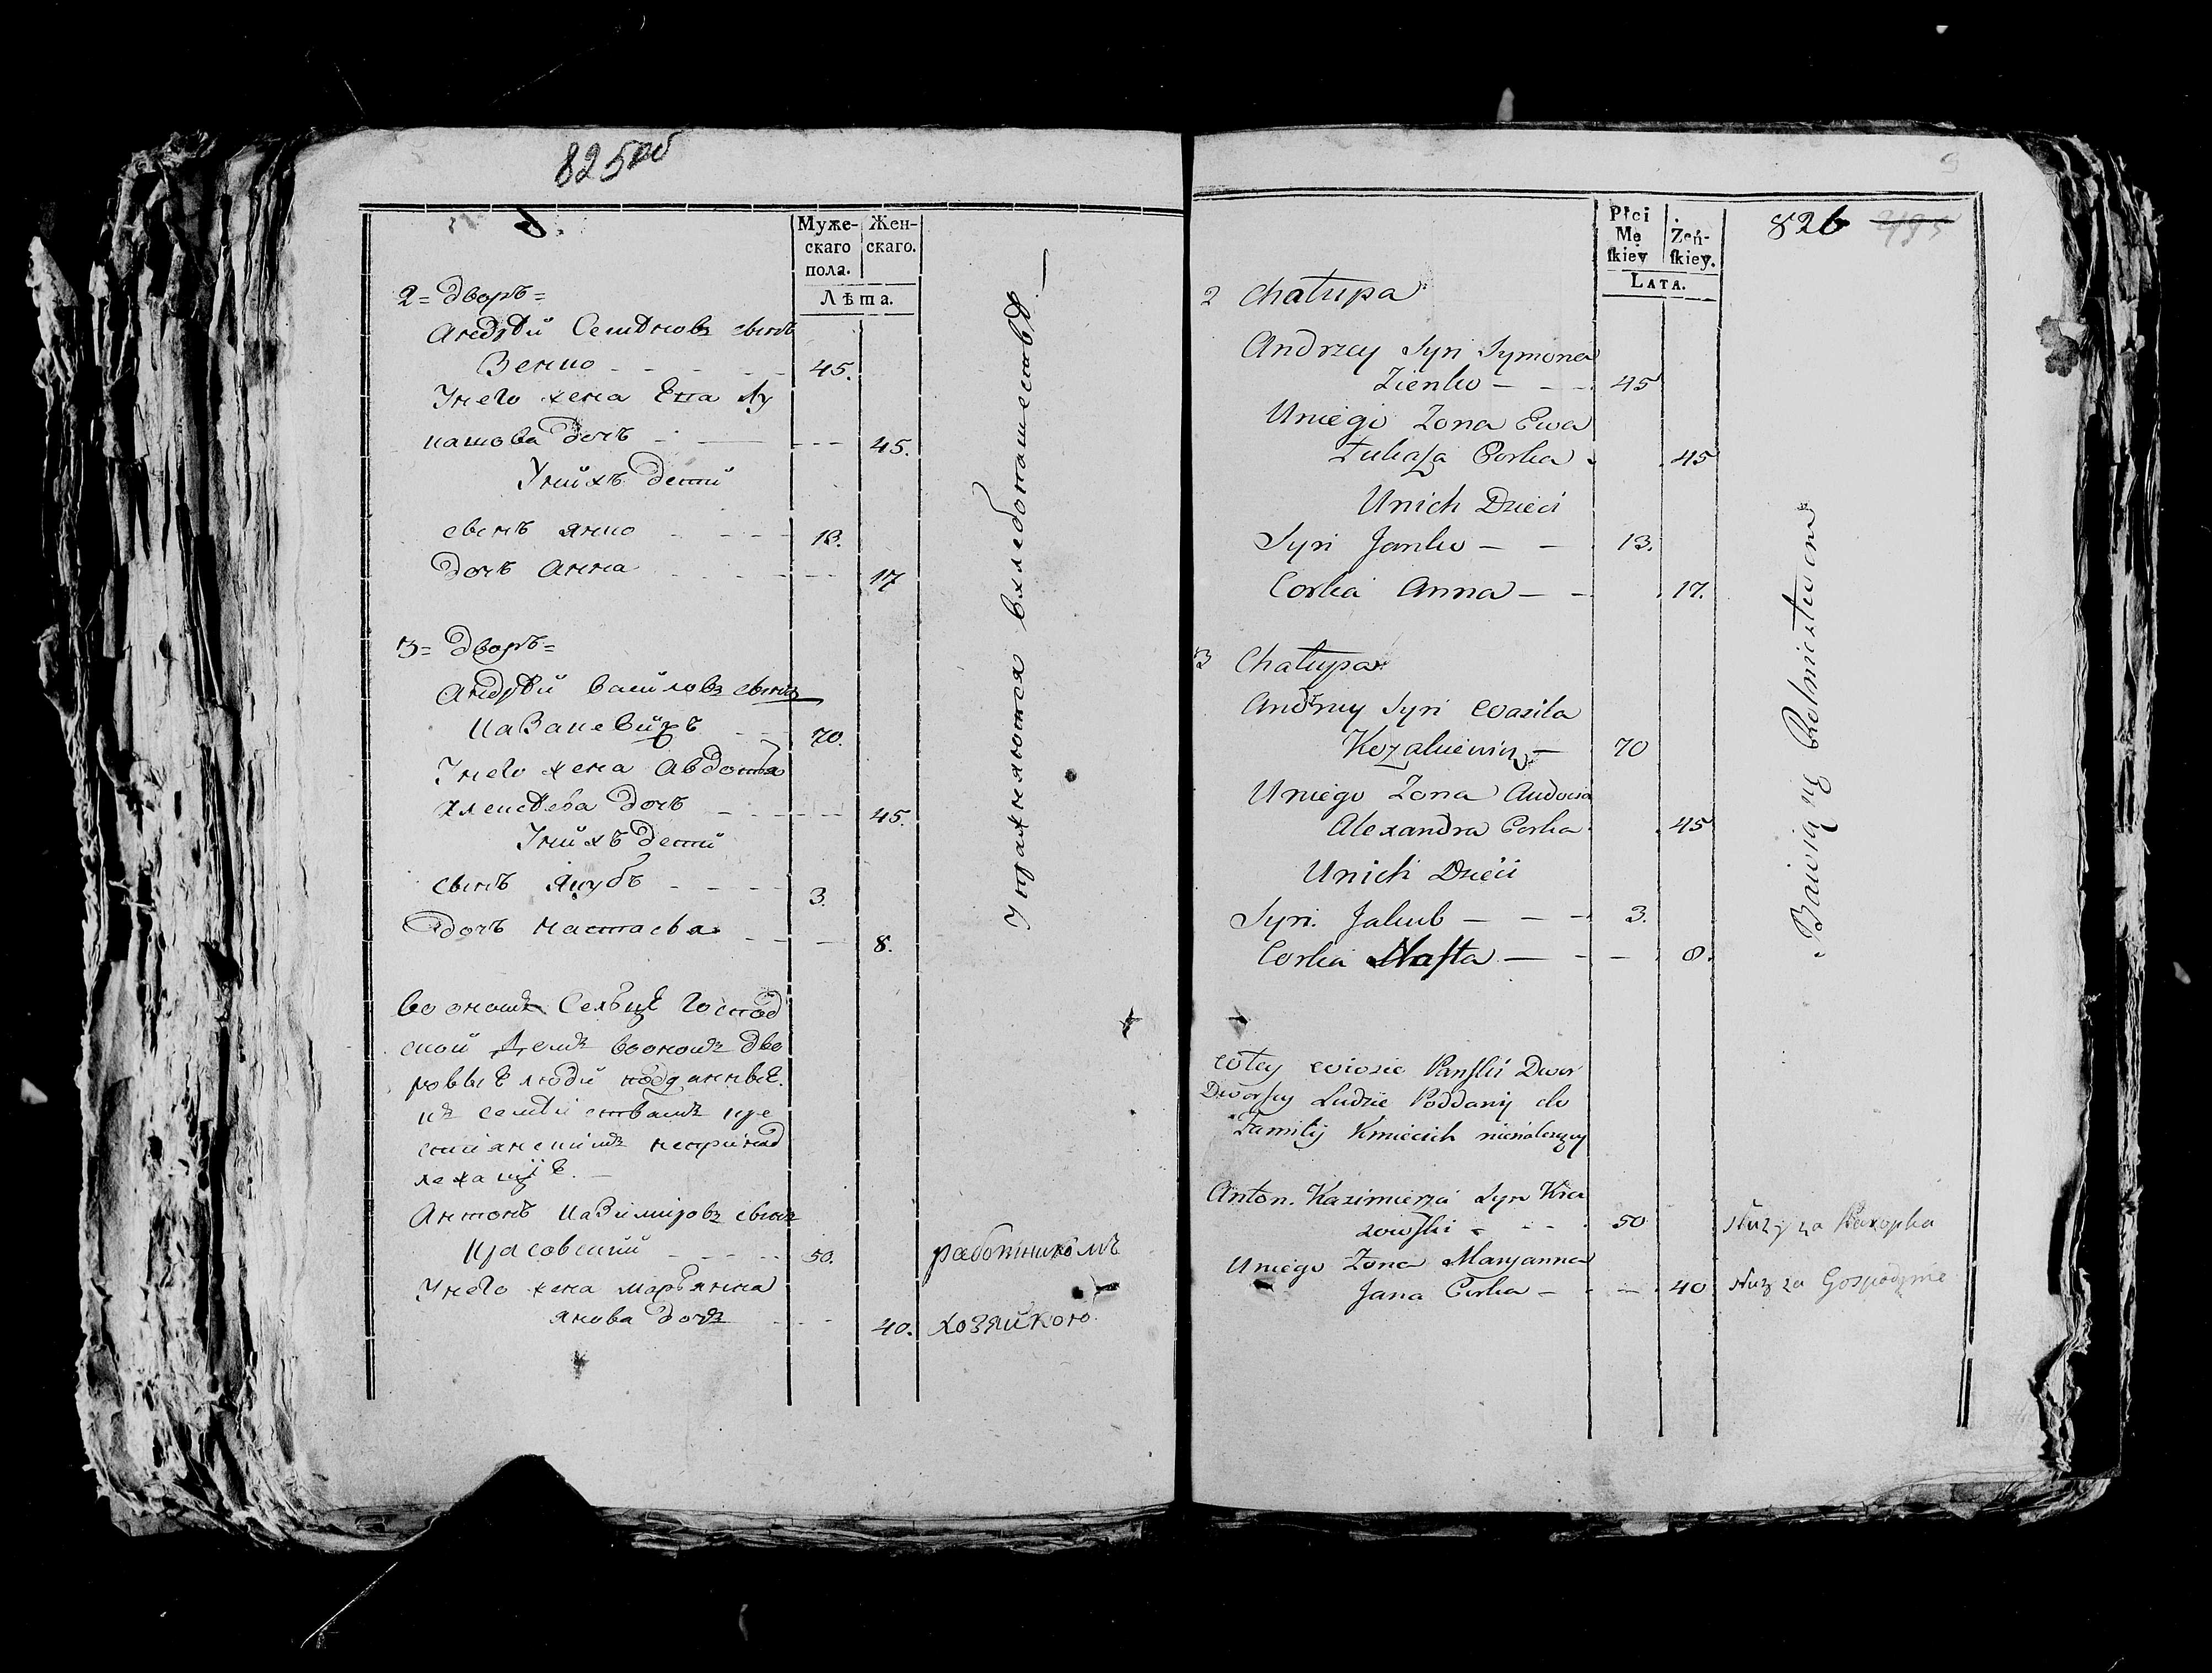 825об
Муже-
скаго
пола.
Жен-
скаго.
Лѣта.
2= дворъ=
Андрѣй Семѣновъ сынъ
Зенко 45.
Унего жена Ева Лу
кашова дочь 45.
Унихъ дети
сынъ Янко 13.
дочь Анна 17
3= дворъ=
Андрѣй василовъ сынъ
Казакевичъ 70.
Унего жена Авдотя
дочь 45.
Унихъ дети
сынъ Якубъ 3.
дочь Настасья 8.
Во ономъ Сельцѣ Господ
ской Домъ во ономъ дво
ровыѣ люди подданныѣ
къ семѣйствамъ кре
стиянскимъ неприннад
лежащіѣ.
Антонъ Казимировъ сынъ
50. работникомъ
Унего жена Марьянна
Янова дочь 40. хозяйкою.
Упражняются вхлебопашествѣ.
826
Płci
Mę
ſkiey
Zeń-
ſkiey.
Lata.
2 Chałupa
Andrzey Syn Symona
Zienko 45
Uniego Zona Ewa
Łukaſza Corka 45
Unich Dzieci
Syn Janko 13.
Corka Anna 17.
3 Chałupa
Andrzey Syn Wasila
Kozakiewicz 70
Uniego Zona Audocia
Alexandra Corka 45
Unich Dzieci
Syn. Jakub 3.
Corka Naſta 8.
wtey wiosce Panſki Dwor
Dworscy Ludzie Poddani do
Familij Kmiecich nienależący
Anton. Kazimierza Syn Kra
sowſki 50 Służy za Paropka
Uniego Zona Maryanna
Jana Corka 40 Służ za Gospodynie
Bawią się Rolnictwem